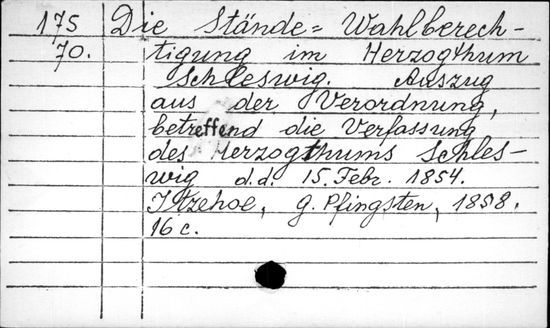 175 Die Stände= Wahlberech-
70. tigung im Herzogthum
Schleswig. Auszug
aus der Verordnung,
betreffend die Verfassung
des Herzogthums Schles-
wig d.d. 15. Febr. 1854.
Itzehoe, g. Pfingsten, 1858.
16 c.